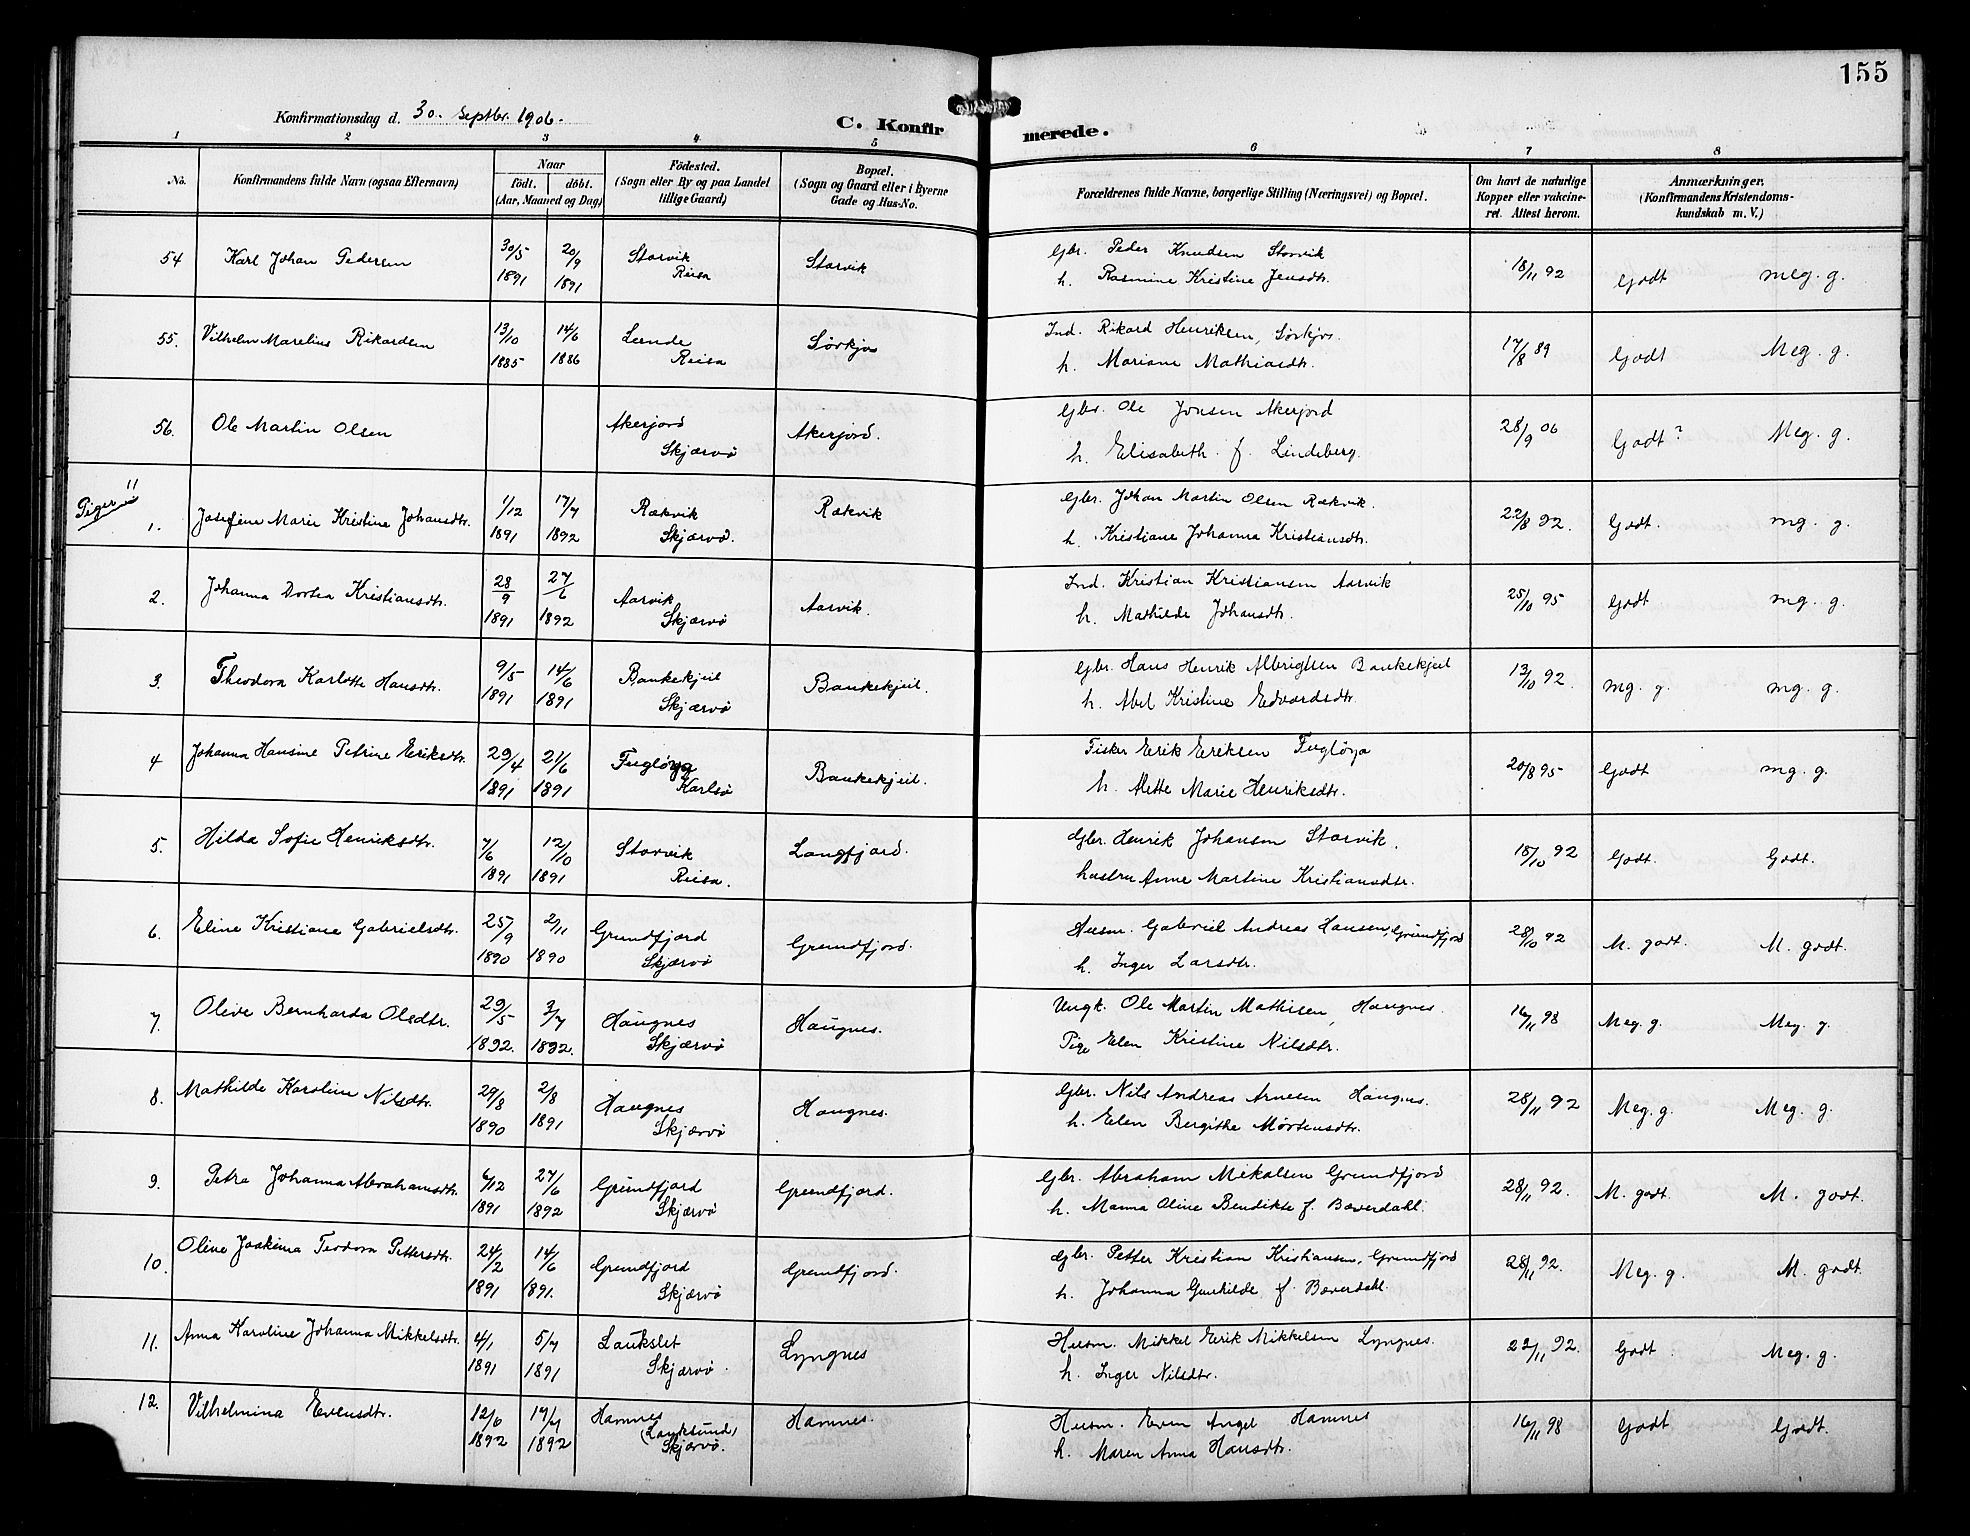 155
Konfirmationsdag d. 30. Septbr. 1906.
C. Konfirmerede.
1 2 3 4 5 6 7 8
No. Konfirmandens fulde Navn (ogsaa Efternavn) Naar født. døbt. (Aar, Maaned og Dag) Födested. (Sogn eller By og paa Landet tillige Gaard) Bopæl. (Sogn og Gaard eller i Byerne Gade og Hus-No. Forældrenes fulde Navne, borgerlige Stilling (Næringsvei) og Bopæl. Om havt de naturlige Kopper eller vakcineret. Attest herom. Anmærkninger. (Konfirmandens Kristendomskundskab m. V.)
54 Karl Johan Pedersen 30/5 1891 20/9 1891 Storvik Reisa Storvik Gbr. Peder Knudsen Storvik
h. Rasmine Kristine Jensdtr. 18/11 92 Godt meg. g.
55. Vilhelm Marelius Rikardsen 13/10 1885 14/6 1886 Leende Reisa Sørkjos Ind. Rikard Henriksen, Sørkjos.
h. Mariane Mathiasdtr. 17/8 89 Godt Meg. g.
56. Ole Martin Olsen Akerjord Skjærvø Akerjord. Gbr. Ole Jonsen Akerjord
h. Elisabeth f. Lindeberg. 28/9 06 Godt? Meg. g.
Piger
1. Josefine Marie Kristine Johansdtr. 1/12 1891 17/7 1892 Rækvik Skjærvø. Rækvik Gbr. Johan Martin Olsen Rækvik.
h. Kristiane Johanna Kristiansdtr. 22/8 92. Godt. mg. g.
2. Johanna Dortea Kristiansdtr. 28/9 1891 27/6 1892 Aarvik Skjærvø Aarvik. Ind. Kristian Kristiansen Aarvik
h. Mathilde Johansdtr. 25/10 95 Godt mg. g.
3. Theodora Karlotte Hansdtr. 9/5 1891 14/6 1891 Bankekjeil Skjærvø Bankekjeil. Gbr. Hans Henrik Albrigtsen Bankekjeil
h. Abel Kristine Edvardsdtr. 13/10 92. mg. g. mg. g.
4 Johanna Hansine Petrine Eriksdtr. 29/4 1891 21/6 1891 Fugløya Karlsø Bankekjeil. Fisker Erik Eriksen Fugløya
h. Mette Marie Henriksdtr. 20/8 95 Godt mg. g.
5. Hilda Sofie Henriksdtr. 7/6 1891 12/10 1891 Storvik Reisa. Langfjord. Gbr. Henrik Johansen Storvik.
hustru Anne Martine Kristiansdtr. 18/10 92 Godt. Godt.
6. Eline Kristiane Gabrielsdtr. 25/9 1890 2/11 1890 Grundfjord Skjærvø Grundfjord. Husm. Gabriel Andreas Hansen, Grundfjord
h. Inger Larsdtr. 28/10 92 M. godt. M. godt.
7. Olive Bernharda Olsdtr. 29/5 1892. 3/7 1892. Haugnes Skjærvø Haugnes. Ungk. Ole Martin Mathisen, Haugnes.
Pige Elen Kristine Nilsdtr. 16/11 98 Meg. g. Meg. g.
8. Mathilde Karoline Nilsdtr. 29/8 1890 2/8 1891 Haugnes Skjærvø Haugnes. Gbr. Nils Andreas Arnesen Haugnes.
h. Elen Bergithe Mørtensdtr. 28/11 92 Meg. g. Meg. g.
9. Petra Johanna Abrahamsdtr. 6/12 1891 27/6 1892 Grundfjord Skjærvø Grundfjord. Gbr. Abraham Mikalsen Grundfjord
h. Manna Oline Bendikte f. Bæverdahl. 28/11 92. M. godt. M. godt.
10. Oline Joakima Teodora Pettersdtr. 24/2 1891 14/6 1891. Grundfjord Skjærvø Grundfjord. Gbr. Petter Kristian Kristiansen, Grundfjord
h. Johanna Gunhilde f. Bæverdahl. 28/11 92. Meg. g. M. godt.
11. Anna Karoline Johanna Mikkelsdtr. 4/1 1891 5/7 1891 Laukslet Skjærvø. Lyngnes Husm. Mikkel Erik Mikkelsen Lyngnes.
h. Inger Nilsdtr. 22/11 92. Godt. Meg. g.
12. Vilhelmina Evensdtr. 12/6 1892 17/7 1892 Hamnes (Lauksund) Skjærvø. Hamnes. Husm. Even Angel Hamnes
h. Maren Anna Hansdtr. 16/11 98 Godt Godt.